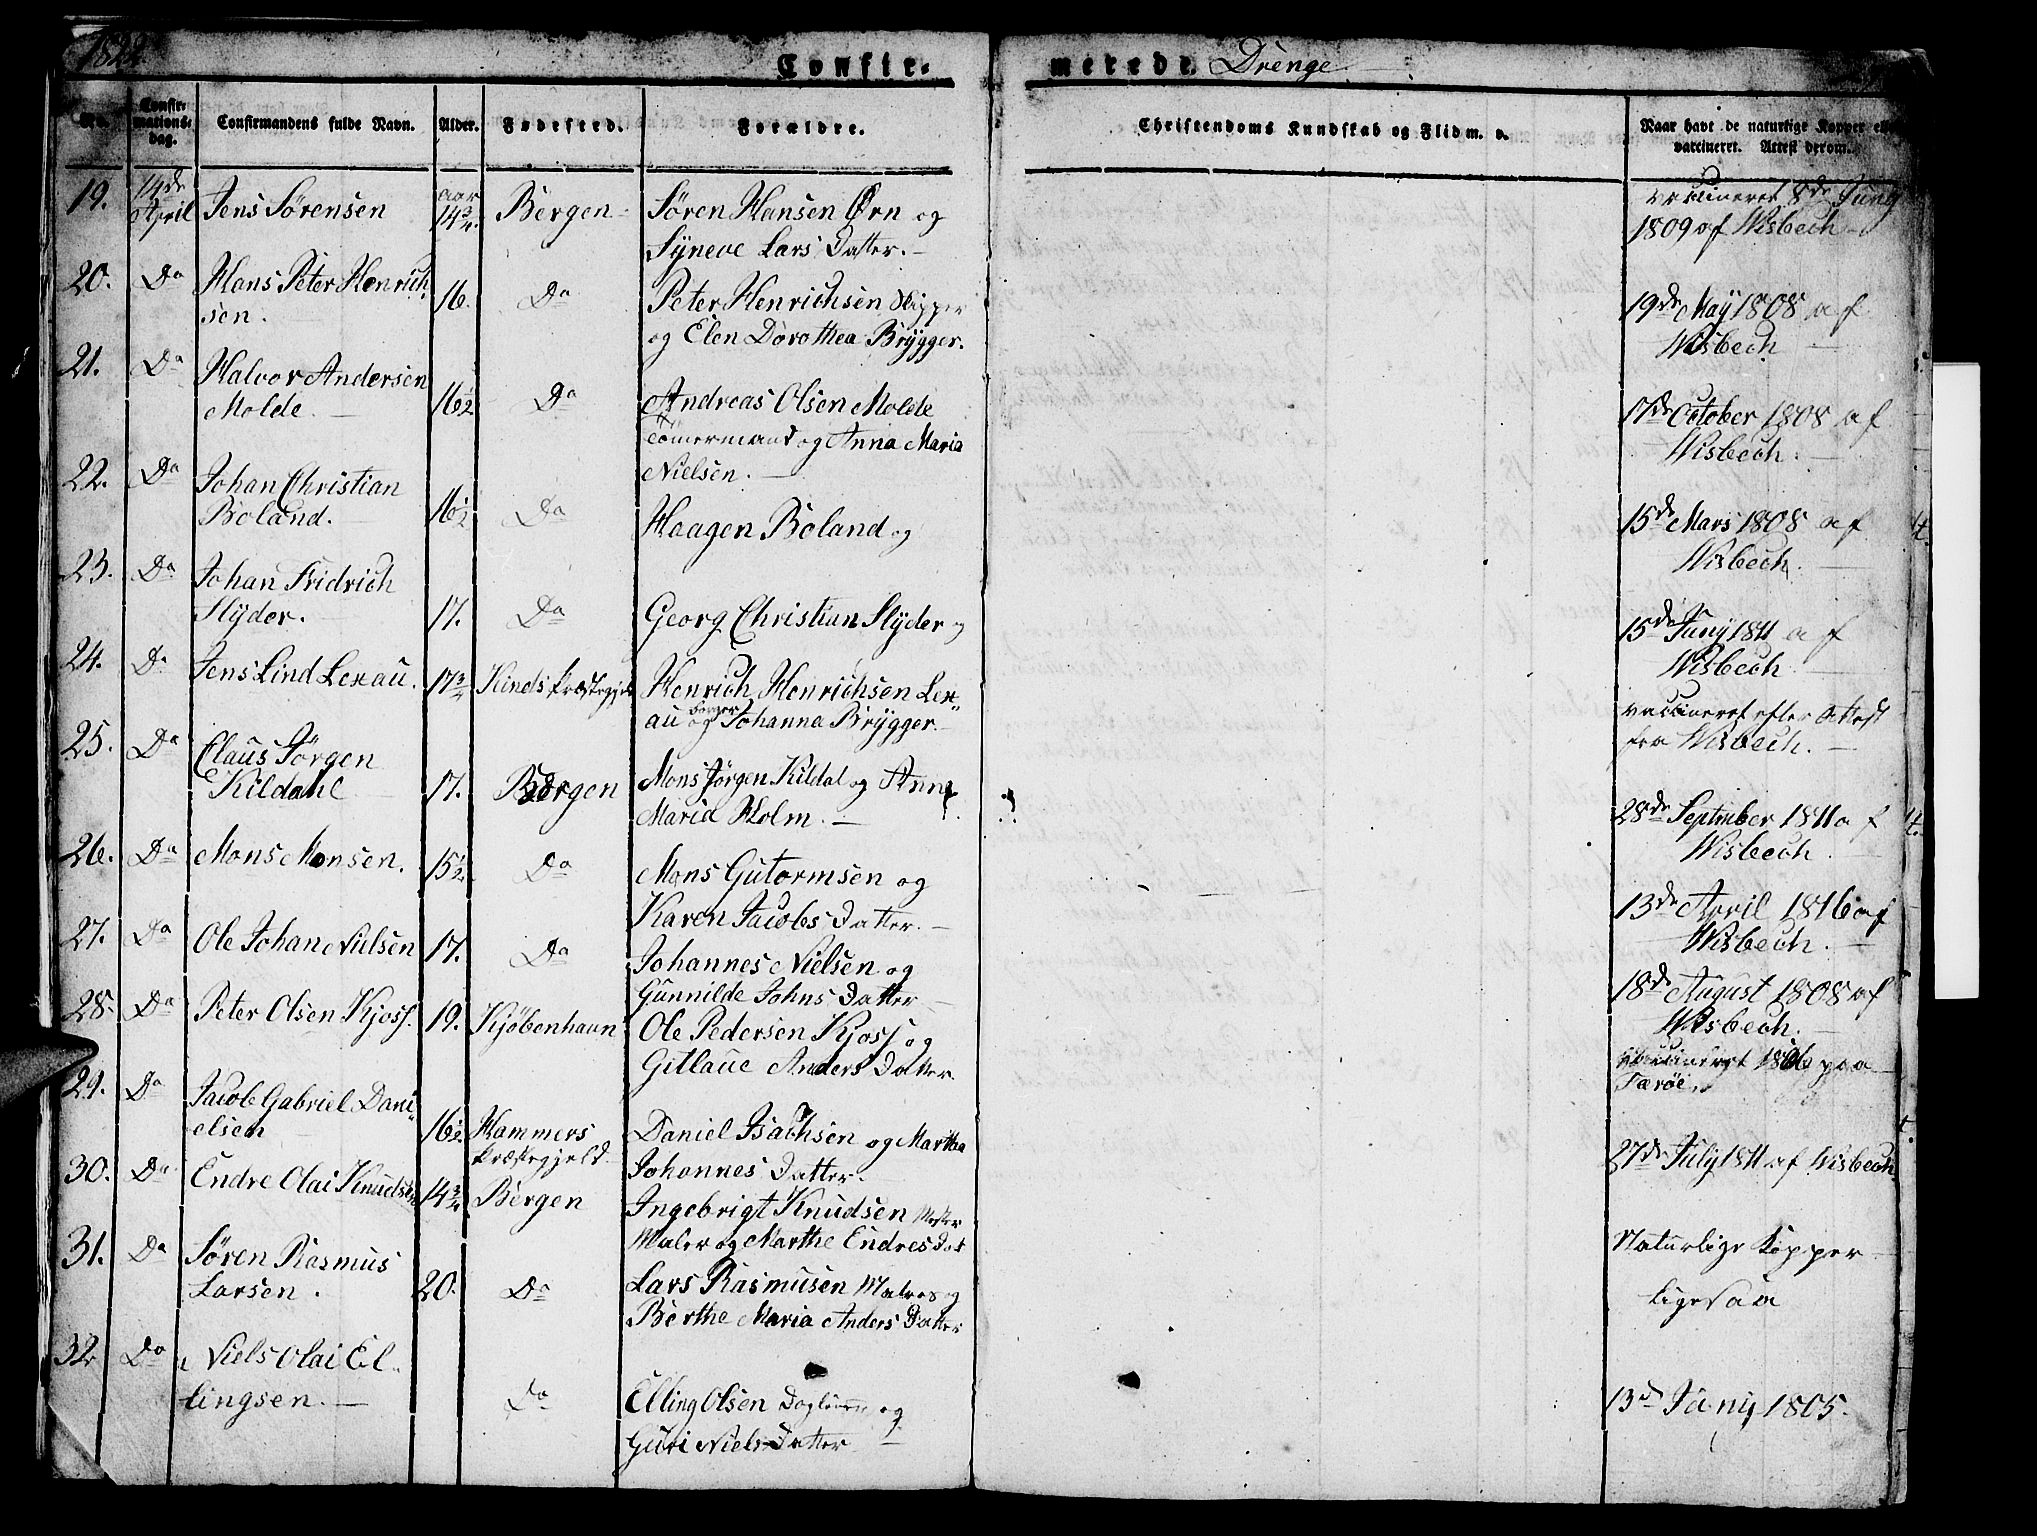 1822
Confirmerede Drenge
No. Confirmations-dag. Confirmandens fulde Navn. Alder. Fødested. Forældre. Christendoms Kundskab og Flid m. v. Naar havt de naturlige Kopper eller vaccineret. Attest derom.
19. 14de April Jens Sörensen aar 14 3/4. Bergen Sören Hansen Örn og
Syneve Lars Datter.
vaccineret 8de Juny
1809 af Wisbech
20. Do Hans Peter Henrich
sen. 16. Do Peter Henrichsen Skipper
og Elen Dorothea Brygger.
19de May 1808 af
Wisbech
21. Do Halvor Andersen
Molde. 16 1/2 Do Andreas Olsen Molde
Tömermand og Anna Maria
Nielsen.
17de October 1808 af
Wisbech.
22. Do Johan Christian
Boland. 16 1/2 Do Haagen Boland og
15de Mars 1808 af
Wisbech.
23. Do Johan Fridrich
Slyder. 17. Do Georg Christian Slyder og
15de Juny 1811 af
Wisbech.
24. Do Jens Lind Lexau. 17 3/4 Kinds Præstegjeld Henrich Henrichsen Lex
au og Johanna Brygger.
vaccineret efter Attest
fra Wisbech.
25. Do Claus Jörgen
Kildahl 17. Bergen Mons Jörgen Kildal og Anne
Maria Holm.
28de September 1811 af
Wisbech
26. Do Mons Monsen. 15 1/2 Do Mons Gutormsen og
Karen Jacobs Datter.
13de April 1816 af
Wisbech.
27. Do Ole Johan Nielsen 17. Do Johannes Nielsen og
Gunnilde Johns Datter
18de August 1808 af
Wisbech.
28. Do Peter Olsen Kjoss. 19. Kjöbenhaun Ole Pedersen Kjoss og
Gitlaue Anders Datter.
vaccineret 1806 paa
Færöe
29. Do Jacob Gabriel Dani
elsen 16 1/2 Hammers
Præstegjeld Daniel Isachsen og Martha
Johannes Datter.
27de July 1811 af Wisbech
30. Do Endre Olai Knudsen 14 3/4 Bergen Ingebrigt Knudsen Mester
Maler og Marthe Endres Dat
Naturlige Kopper
31. Do Sören Rasmus
Larsen. 20. Do Lars Rasmusen og
Berthe Maria Anders Datter
ligesaa
32. Do Niels Olai El
lingsen. Do Elling Olsen og
Guri Niels Datter
13de Juny 1805.